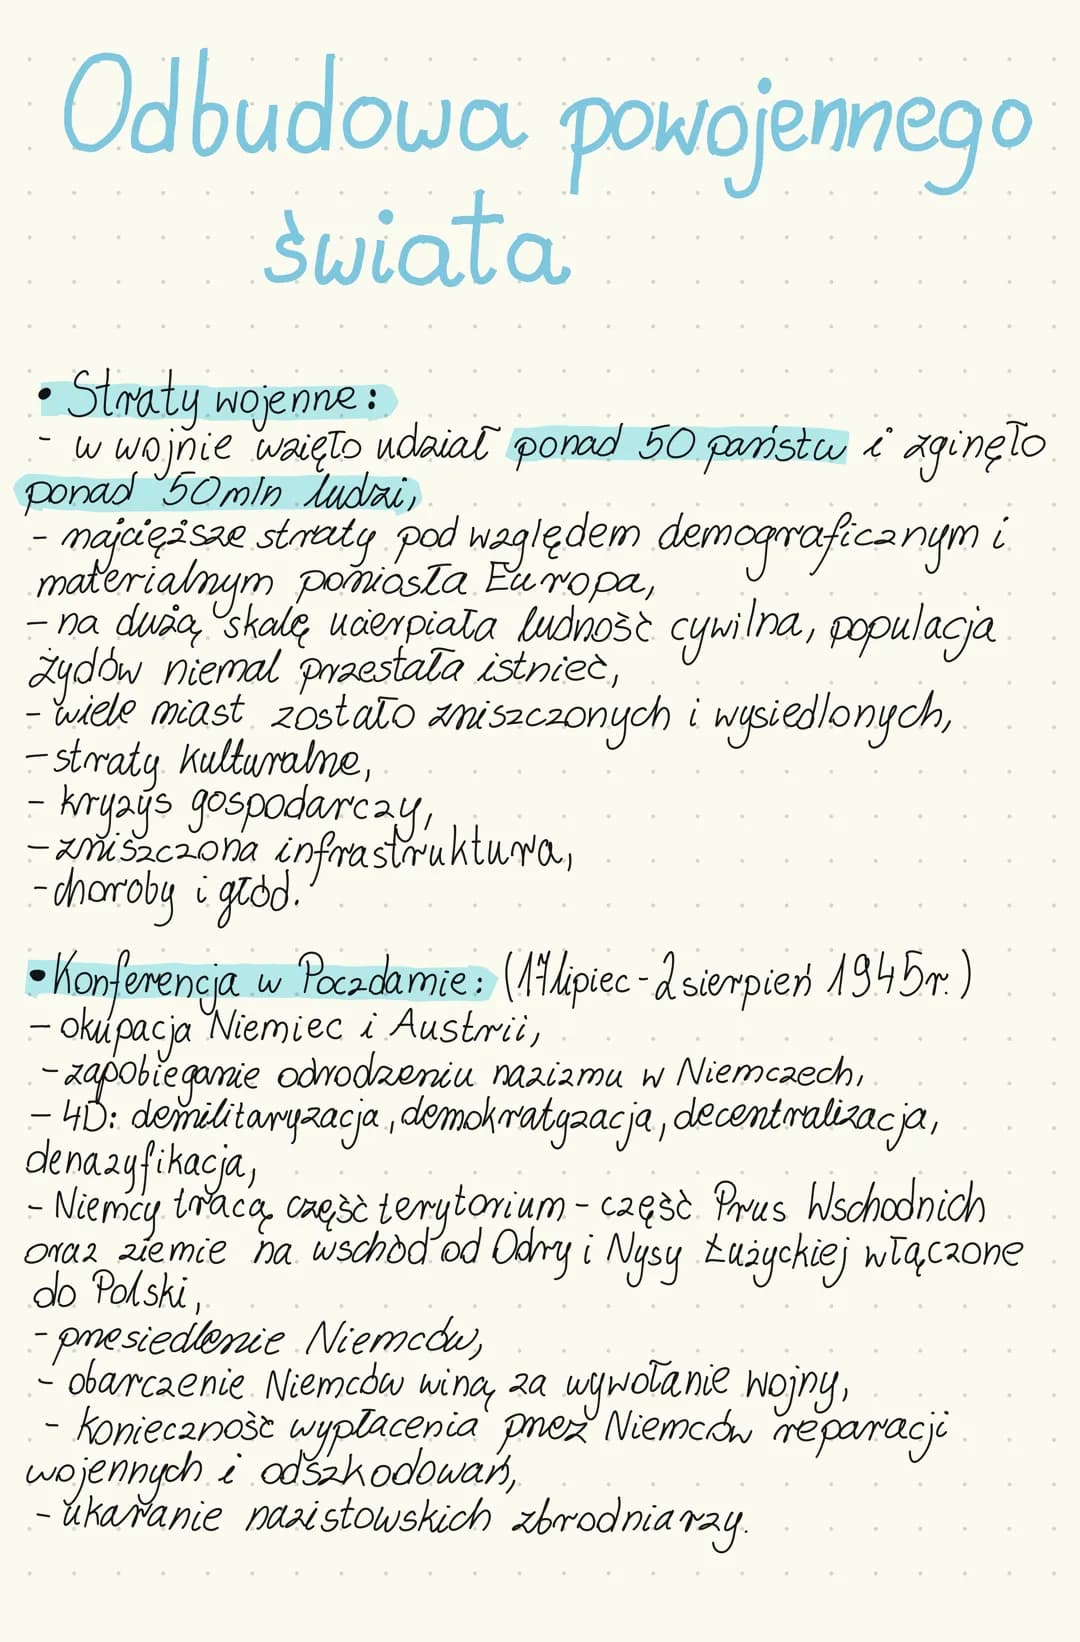 Odbudowa powojennego
świata
• Straty wojenne:
- w wojnie wzięło udział ponad 50 państw i zginęło
ponad 50 mln ludzi,
- najcięższe straty pod względem demograficznym i
materialnym poniosła Europa,
- na dużą skalę ucierpiała ludność cywilna, populacja
żydów niemal przestała istnieć,
- wiele miast zostało zniszczonych i wysiedlonych,
- straty kulturalne,
- kryzys gospodarczy,
- zniszczona infrastruktura,
- choroby i głód.
• Konferencja w Poczdamie: (17 lipiec - 2 sierpień 1945r.)
- okupacja Niemiec i Austrii,
- zapobieganie odrodzeniu nazizmu w Niemczech,
- 4D: demilitaryzacja, demokratyzacja, decentralizacja,
denazyfikacja,
- Niemcy tracą część terytorium - część Prus Wschodnich
oraz ziemie na wschód od Odry i Nysy Łużyckiej włączone
do Polski,
- przesiedlenie Niemców,
- obarczenie Niemców winą za wywołanie wojny,
- konieczność wypłacenia przez Niemców reparacji
wojennych i odszkodowań,
- ukaranie nazistowskich zbrodniarzy.